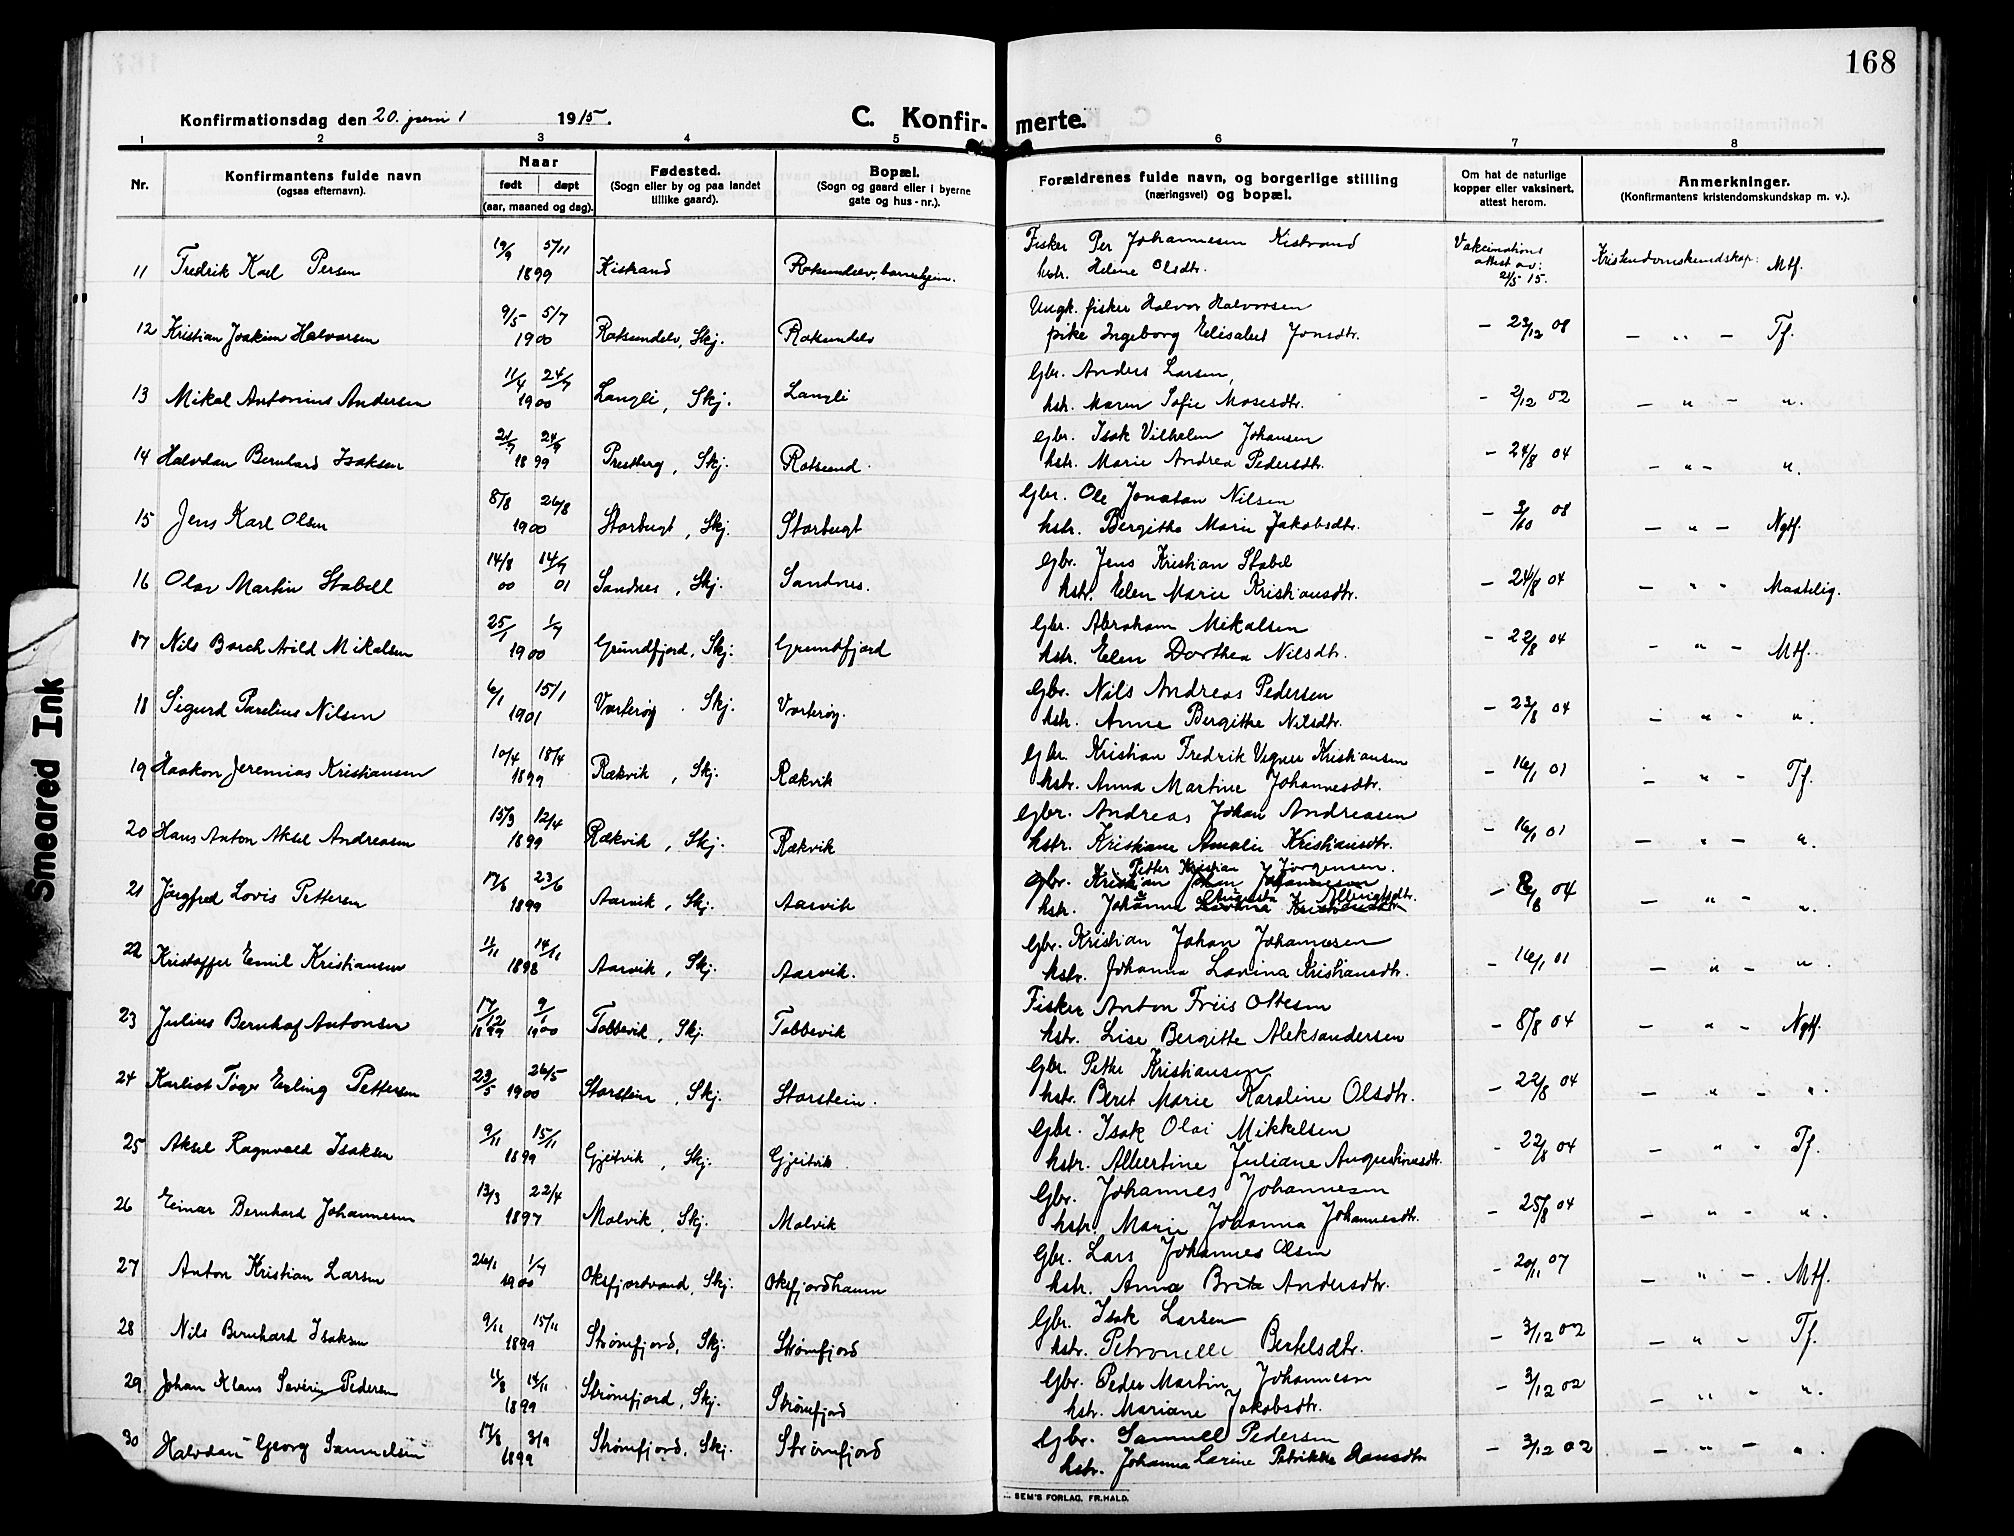 168
Konfirmationsdag den 20. juni 1915.
C. Konfirmerte.
1 2 3 4 5 6 7 8
Nr.
Konfirmantens fulde navn
(ogsaa efternavn).
Naar
født døpt
(aar, maaned og dag).
Fødested.
(Sogn eller by og paa landet
tillike gaard).
Bopæl.
(Sogn og gaard eller i byerne
gate og hus-nr.).
Forældrenes fulde navn, og borgerlige stilling
(næringsvei) og bopæl.
Om hat de naturlige
kopper eller vaksinert.
attest herom.
Anmerkninger.
(Konfirmantens kristendomskundskap m. v.).
19/9 5/11 Fisker Per Johannesen Kistrand Vakcinations
11 Fredrik Karl Persen 1899 Kistrand Rotsundelv, barnehjem. hstr. Helene Olsdtr. attest av: 21/5 15. Kristendomskundskap: Mtf.
9/5 5/7 Ungk. fisker Halvor Halvorsen
12 Kristian Joakim Halvorsen 1900 Rotsundelv, Skj. Rotsundelv pike Ingeborg Elisabet Jonsdtr. - 23/12 08 - " - Tf.
11/4 24/7 Gbr. Anders Larsen,
13 Mikal Antonius Andersen 1900 Langli, Skj. Langli hstr. Maren Sofie Mosesdtr. - 2/12 02 - " - ".
21/7 24/9 Gbr. Isak Vilhelm Johansen
14 Halvdan Bernhard Isaksen 1899 Prestberg, Skj. Rotsund. hstr. Marie Andrea Pedersdtr. - 24/8 04 - " - ".
8/8 26/8 Gbr. Ole Jonatan Nilsen
15 Jens Karl Olsen 1900 Storbugt, Skj. Storbugt hstr. Bergitte Marie Jakobsdtr. - 3/10 08 - " - Ngtf.
14/8 14/7 Gbr. Jens Kristian Stabel
16 Olav Martin Stabell 00 01 Sandnes, Skj. Sandnes. hstr. Elen Marie Kristiansdtr. - 24/8 04 - " - Maatelig.
25/1 1/7 Gbr. Abraham Mikalsen
17 Nils Borch Arild Mikalsen 1900 Grundfjord, Skj. Grundfjord hstr. Elen Dorthea Nilsdtr. - 22/8 04 - " - Mtf.
6/1 15/1 Gbr. Nils Andreas Pedersen
18 Sigurd Parelius Nilsen 1901 Vorterøy. Skj. Vorterøy. hstr. Anne Bergitte Nilsdtr. - 23/8 04 - " - ".
10/4 18/4 Gbr. Kristian Fredrik Vigner Kristiansen
19 Haakon Jeremias Kristiansen 1899 Rækvik, Skj. Rækvik hstr. Anna Martine Johannesdtr. - 16/1 01 - " - Tf.
15/3 12/4 Gbr. Andreas Johan Andreasen
20 Hans Anton Aksel Andreasen 1899 Rækvik, Skj. Rækvik hstr. Kristiane Amalie Kristiansdtr. - 16/1 01 - " - ".
17/6 23/6 Gbr. Petter Kristian Jørgensen. Kristian Johan Johannesen
21 Jørgfred Lovis Pettersen 1899 Aarvik, Skj. Aarvik hstr. Johanna Lovina Kristiansdtr. - 04 - " - ".
11/11 14/11 Gbr. Kristian Johan Johannesen
22 Kristoffer Emil Kristiansen 1898 Aarvik, Skj. Aarvik. hstr. Johanna Lovina Kristiansdtr. - 16/1 01 - " - ".
17/12 9/1 Fisker Anton Friis Ottesen
23 Julius Bernhof Antonsen 1899 1900 Tobbevik, Skj. Tobbevik hstr. Lise Bergitte Aleksandersen - 8/8 04 - " - Ngtf.
23/5 26/5 Gbr. Petter Kristiansen
24 Karliot Tøger Erling Pettersen 1900 Storstein, Skj. Storstein. hstr. Beret Marie Karoline Olsdtr. - 22/8 04 - " - ".
9/11 15/11 Gbr. Isak Olai Mikkelsen
25 Aksel Ragnvald Isaksen 1899 Gjeitvik, Skj. Gjeitvik hstr. Albertine Juliane Augustinusdtr. - 22/8 04 - " - Tf.
13/3 22/4 Gbr. Johannes Johannesen
26 Einar Bernhard Johannesen 1897 Molvik, Skj. Molvik hstr. Marie Johanna Johannesdtr. - 25/8 04 - " - ".
26/1 1/7 Gbr. Lars Johannes Olsen
27 Anton Kristian Larsen 1900 Oksfjordvand, Skj. Oksfjordhavn hstr. Anna Brita Andersdtr. - 20/11 07 - " - Mtf.
9/11 15/11 Gbr. Isak Larsen
28 Nils Bernhard Isaksen 1899 Strømfjord, Skj. Strømfjord hstr. Petronelle Bertelsdtr. - 3/12 02 - " - Tf.
11/8 14/11 Gbr. Peder Martin Johannesen
29 Johan Klaus Severin Pedersen 1899 Strømfjord, Skj. Strømfjord hstr. Mariane Jakobsdtr. - 3/12 02 - " - ".
17/8 3/9 Gbr. Samuel Pedersen
30 Halvdan Georg Samuelsen 1899 Strømfjord, Skj. Strømfjord hstr. Johanna Larine Petrikke Hansdtr - 3/12 02 - " - ".
SEM'S FORLAG, FR.HALD.
Smeared Ink